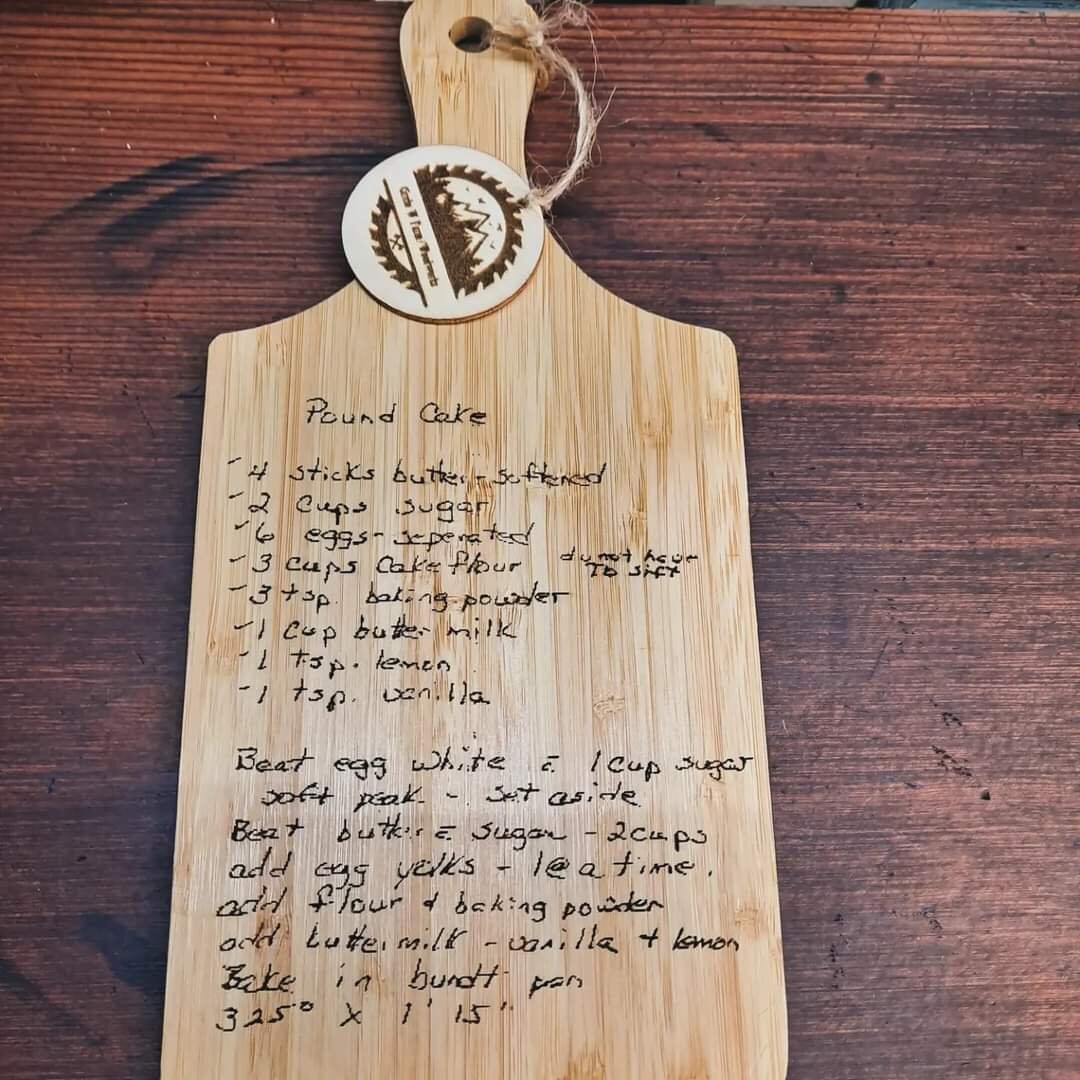 Pound Cake
- 4 sticks butter - softened
- 2 cups sugar
- 6 eggs - seperated
- 3 cups Cake flour do not have To sift
- 3 tsp. baking powder
- 1 cup butter milk
- 1 tsp. lemon
- 1 tsp. vanilla
Beat egg white c̄ 1 cup sugar
soft peak - set aside
Beat butter c̄ sugar - 2 cups
add egg yolks - 1 @ a time.
add flour & baking powder
add buttermilk - vanilla + lemon
Bake in bundt pan
325° X 1' 15"